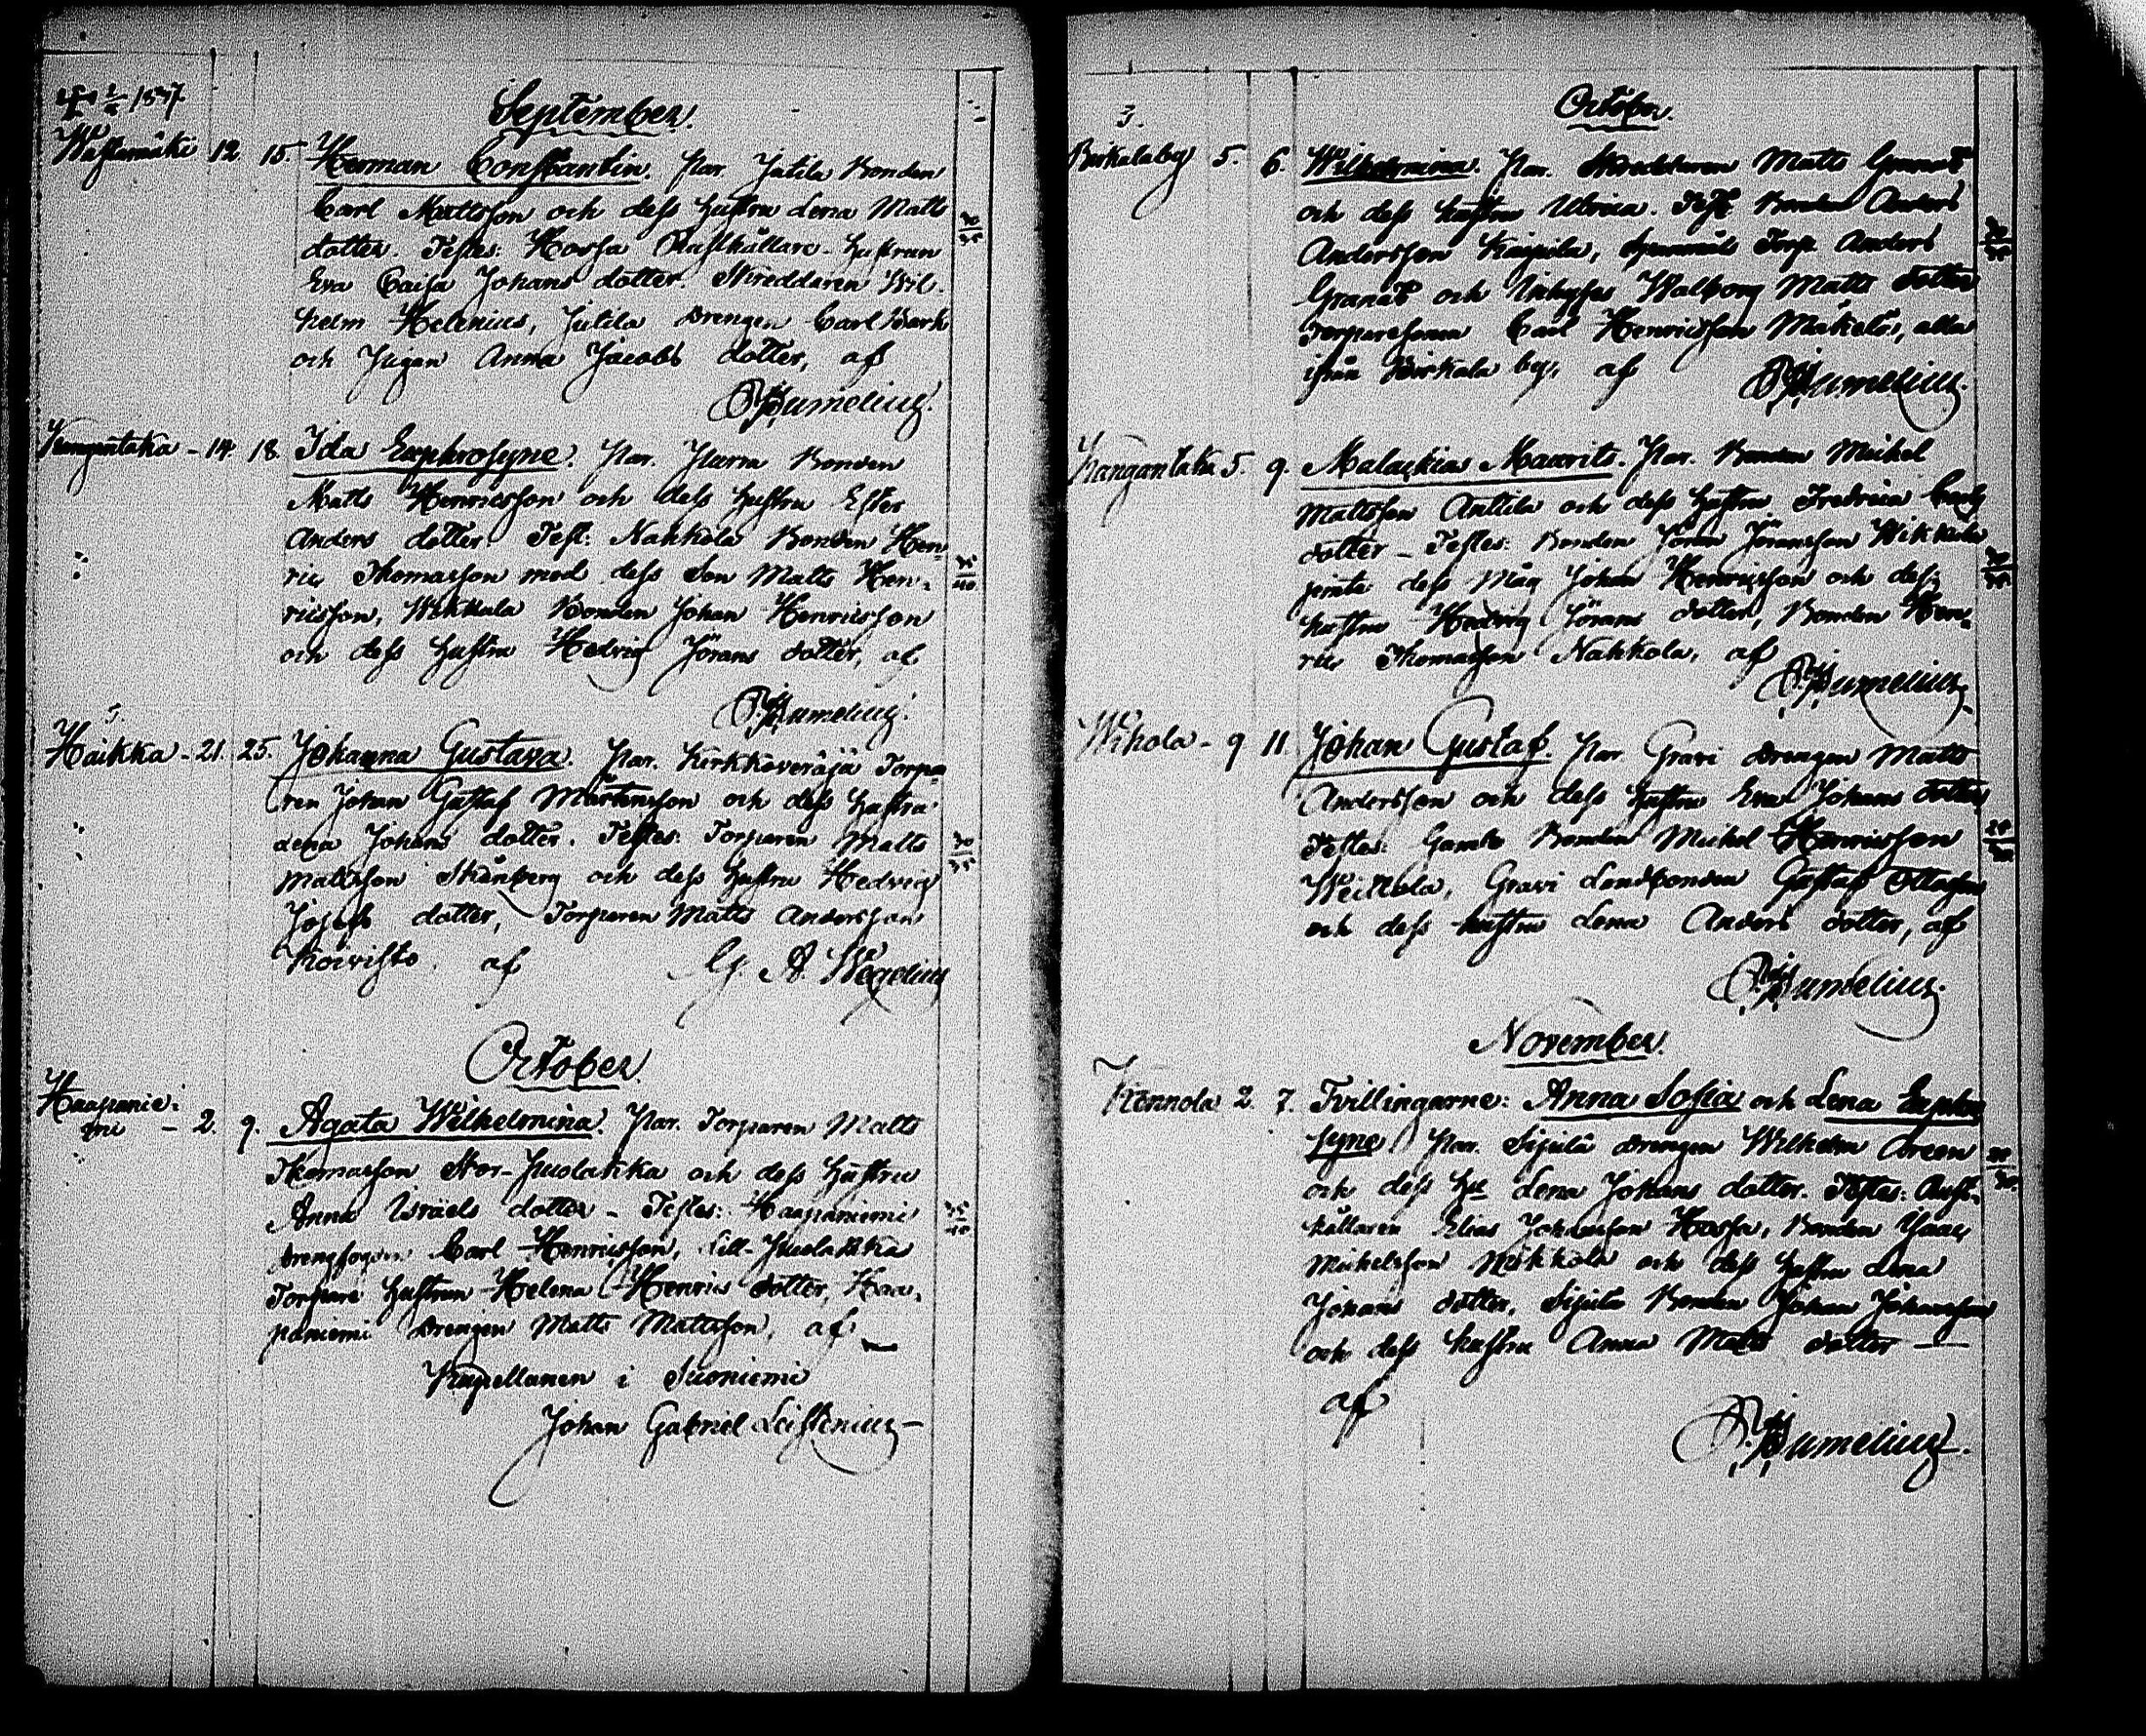 1/2 1847.
September.
Wästämäki 12. 15. Herman Constantin. Par. Jutila Bonden 30/35
Carl Mattsson och dess hustru Lena Matts
dotter. Testes: Hossa Rusthållare-hustrun
Eva Caisa Johans dotter. Skreddaren Wil-
helm Helenius, Jutila Drengen Carl
och Pigan Anna Jacobs dotter, af
Bumelius.
Kangantaka - 14. 18. Ida Euphrosyne. Par. Bonden
Matts Henricsson och dess hustru Ester
Anders dotter. Test: Nakkola Bonden Hen-
ric Thomasson med dess Son Matts Hen-
ricsson, Wikkala Bonden Johan Henricsson
och dess hustru Hedvig Jörans dotter, af
Bumelius.
Haikka - 21. 25. Johanna Gustava. Par. Kirkkoveräjä Torpa- 30/35
ren Johan Gustaf Mårtensson och dess hustru
Lena Johans dotter. Testes: Torparen Matts
Mattsson Strånberg och dess hustru Hedvig
Josefs dotter, Torparen Matts Andersson
Koivisto. af G. A. Wegelius
October.
Haapanie-
mi - 2. 9. Agata Wilhelmina. Par. Torparen Matts
Thomasson Stor-Puolakka och dess hustru
Anna Israels dotter - Testes: Haapaniemi
Drengfogden Carl Henricsson, Lill-Puolakka
Torpare hustrun Helena Henrics dotter, Haa-
paniemi Drengen Matts Mattsson, af
Kapellanen i Suoniemi
Johan Gabriel Leistenius
October.
Birkalaby 5. 6. Wilhelmina. Par. Skreddaren Matts Granat
och dess hustru Ulrica. Test: Bonden Anders
Andersson Knipila, Torp. Anders
Granat och Walborg Matts dotter
Torparesonen Carl Henricsson Mäkelä, alla
ifrån Birkala by, af Bumelius.
Kangantaka 5. 9. Malackias Maurits. Par. Bonden Michel
Mattsson Anttila och dess hustru Fredrica Carls
dotter - Testes: Bonden Jöran Jöransson Wikkala
jemte dess Måg Johan Henricsson och dess
hustru Hedvig Jörans dotter, Bonden Hen-
ric Thomasson Nakkola, af Bumelius
Wihola - 9 11. Johan Gustaf. Par. Gravi Drengen Matts
Andersson och dess hustru Eva Johans dotter
Testes: Gamle Bonden Michel Henricsson
Gravi Landbonden Gustaf
och dess hustru Lena Anders dotter, af
Bumelius.
November.
Kennola 2. 7. Tvillingarne: Anna Sofia och Lena Euphro
syne Par. Sipilä Drengen Wilhelm Oreen
och dess hu Lena Johans dotter. Testes: Rust-
hållaren Elias Johansson Hossa, Bonden Isaac
Michelsson och dess hustru Lena
Johans dotter, Sipilä Bonden Johan Johansson
och dess hustru Anna Matts dotter —
af
Bumelius.